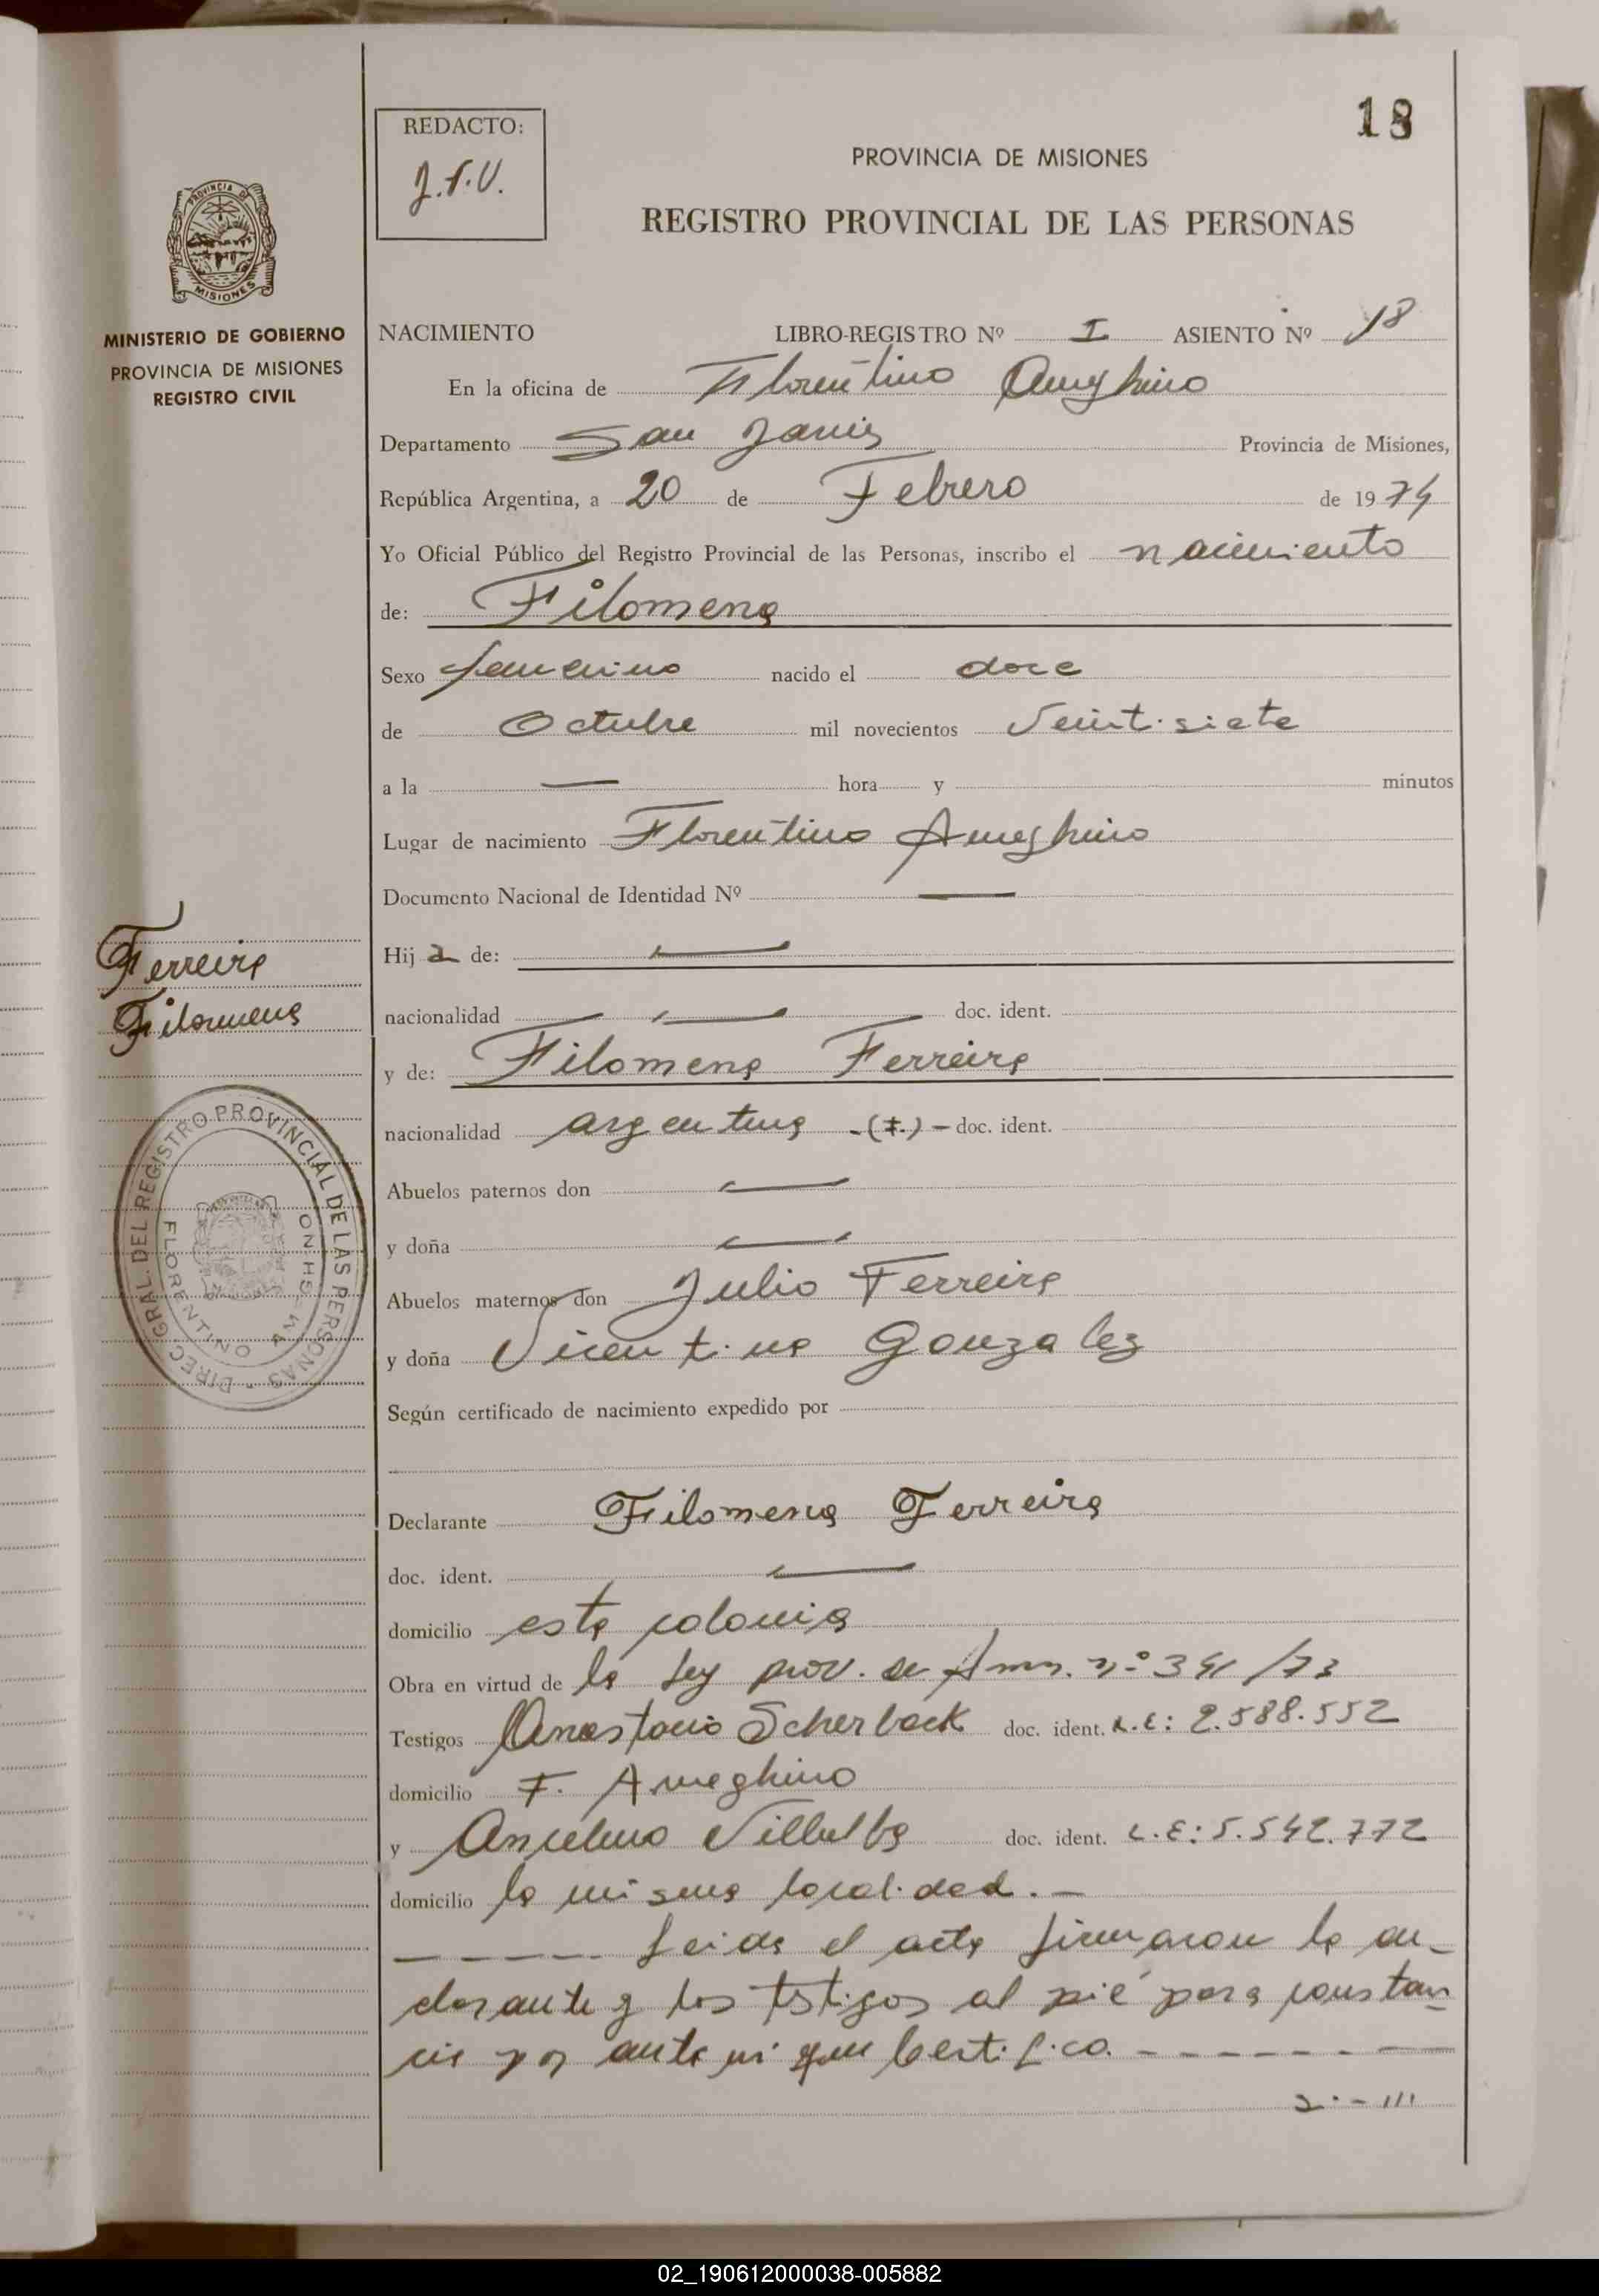 18
REDACTO:
J.T.V.
PROVINCIA DE MISIONES
REGISTRO PROVINCIAL DE LAS PERSONAS
PROVINCIA DE
MISIONES
MINISTERIO DE GOBIERNO
PROVINCIA DE MISIONES
REGISTRO CIVIL
NACIMIENTO LIBRO-REGISTRO Nº I ASIENTO Nº 18
En la oficina de Florentino Ameghino
Departamento San Javier Provincia de Misiones,
República Argentina, a 20 de Febrero de 1974
Yo Oficial Público del Registro Provincial de las Personas, inscribo el nacimiento
de: Filomena
Sexo femenino nacido el doce
de Octubre mil novecientos Veintisiete
a la — hora y minutos
Lugar de nacimiento Florentino Ameghino
Documento Nacional de Identidad Nº —
Hija de: —
nacionalidad — doc. ident.
y de: Filomena Ferreira
nacionalidad argentina -(F.)- doc. ident.
Abuelos paternos don —
y doña —
Abuelos maternos don Julio Ferreira
y doña Vicentina Gonzalez
Según certificado de nacimiento expedido por
Declarante Filomena Ferreira
doc. ident. —
domicilio esta colonia
Obra en virtud de la Ley prov. de Amn. nº 341/73
Testigos Anastacio Scherback doc. ident. L.E: 2.588.552
domicilio F. Ameghino
y Anselmo Villalba doc. ident. L.E: 5.542.772
domicilio la misma localidad.-
----- Leida el acta firmaron la de-
clarante y los testigos al pié para constan-
cia por ante mi que Certifico. -------
2.-///
Ferreira
Filomena
DIREC. GRAL. DEL REGISTRO PROVINCIAL DE LAS PERSONAS -
FLORENTINO AMEGHINO
02_190612000038-005882